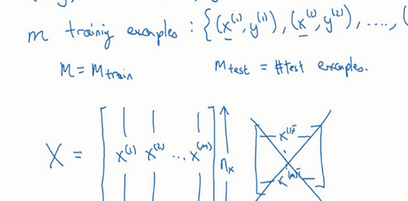 m training examples : {(x⁽¹⁾, y⁽¹⁾), (x⁽²⁾, y⁽²⁾), ...., (
M = M train    M test = #test examples.
X = [ x⁽¹⁾ x⁽²⁾ ... x⁽ᵐ⁾ ] ↑ nₓ    x⁽¹⁾ᵀ
x⁽ᵐ⁾ᵀ